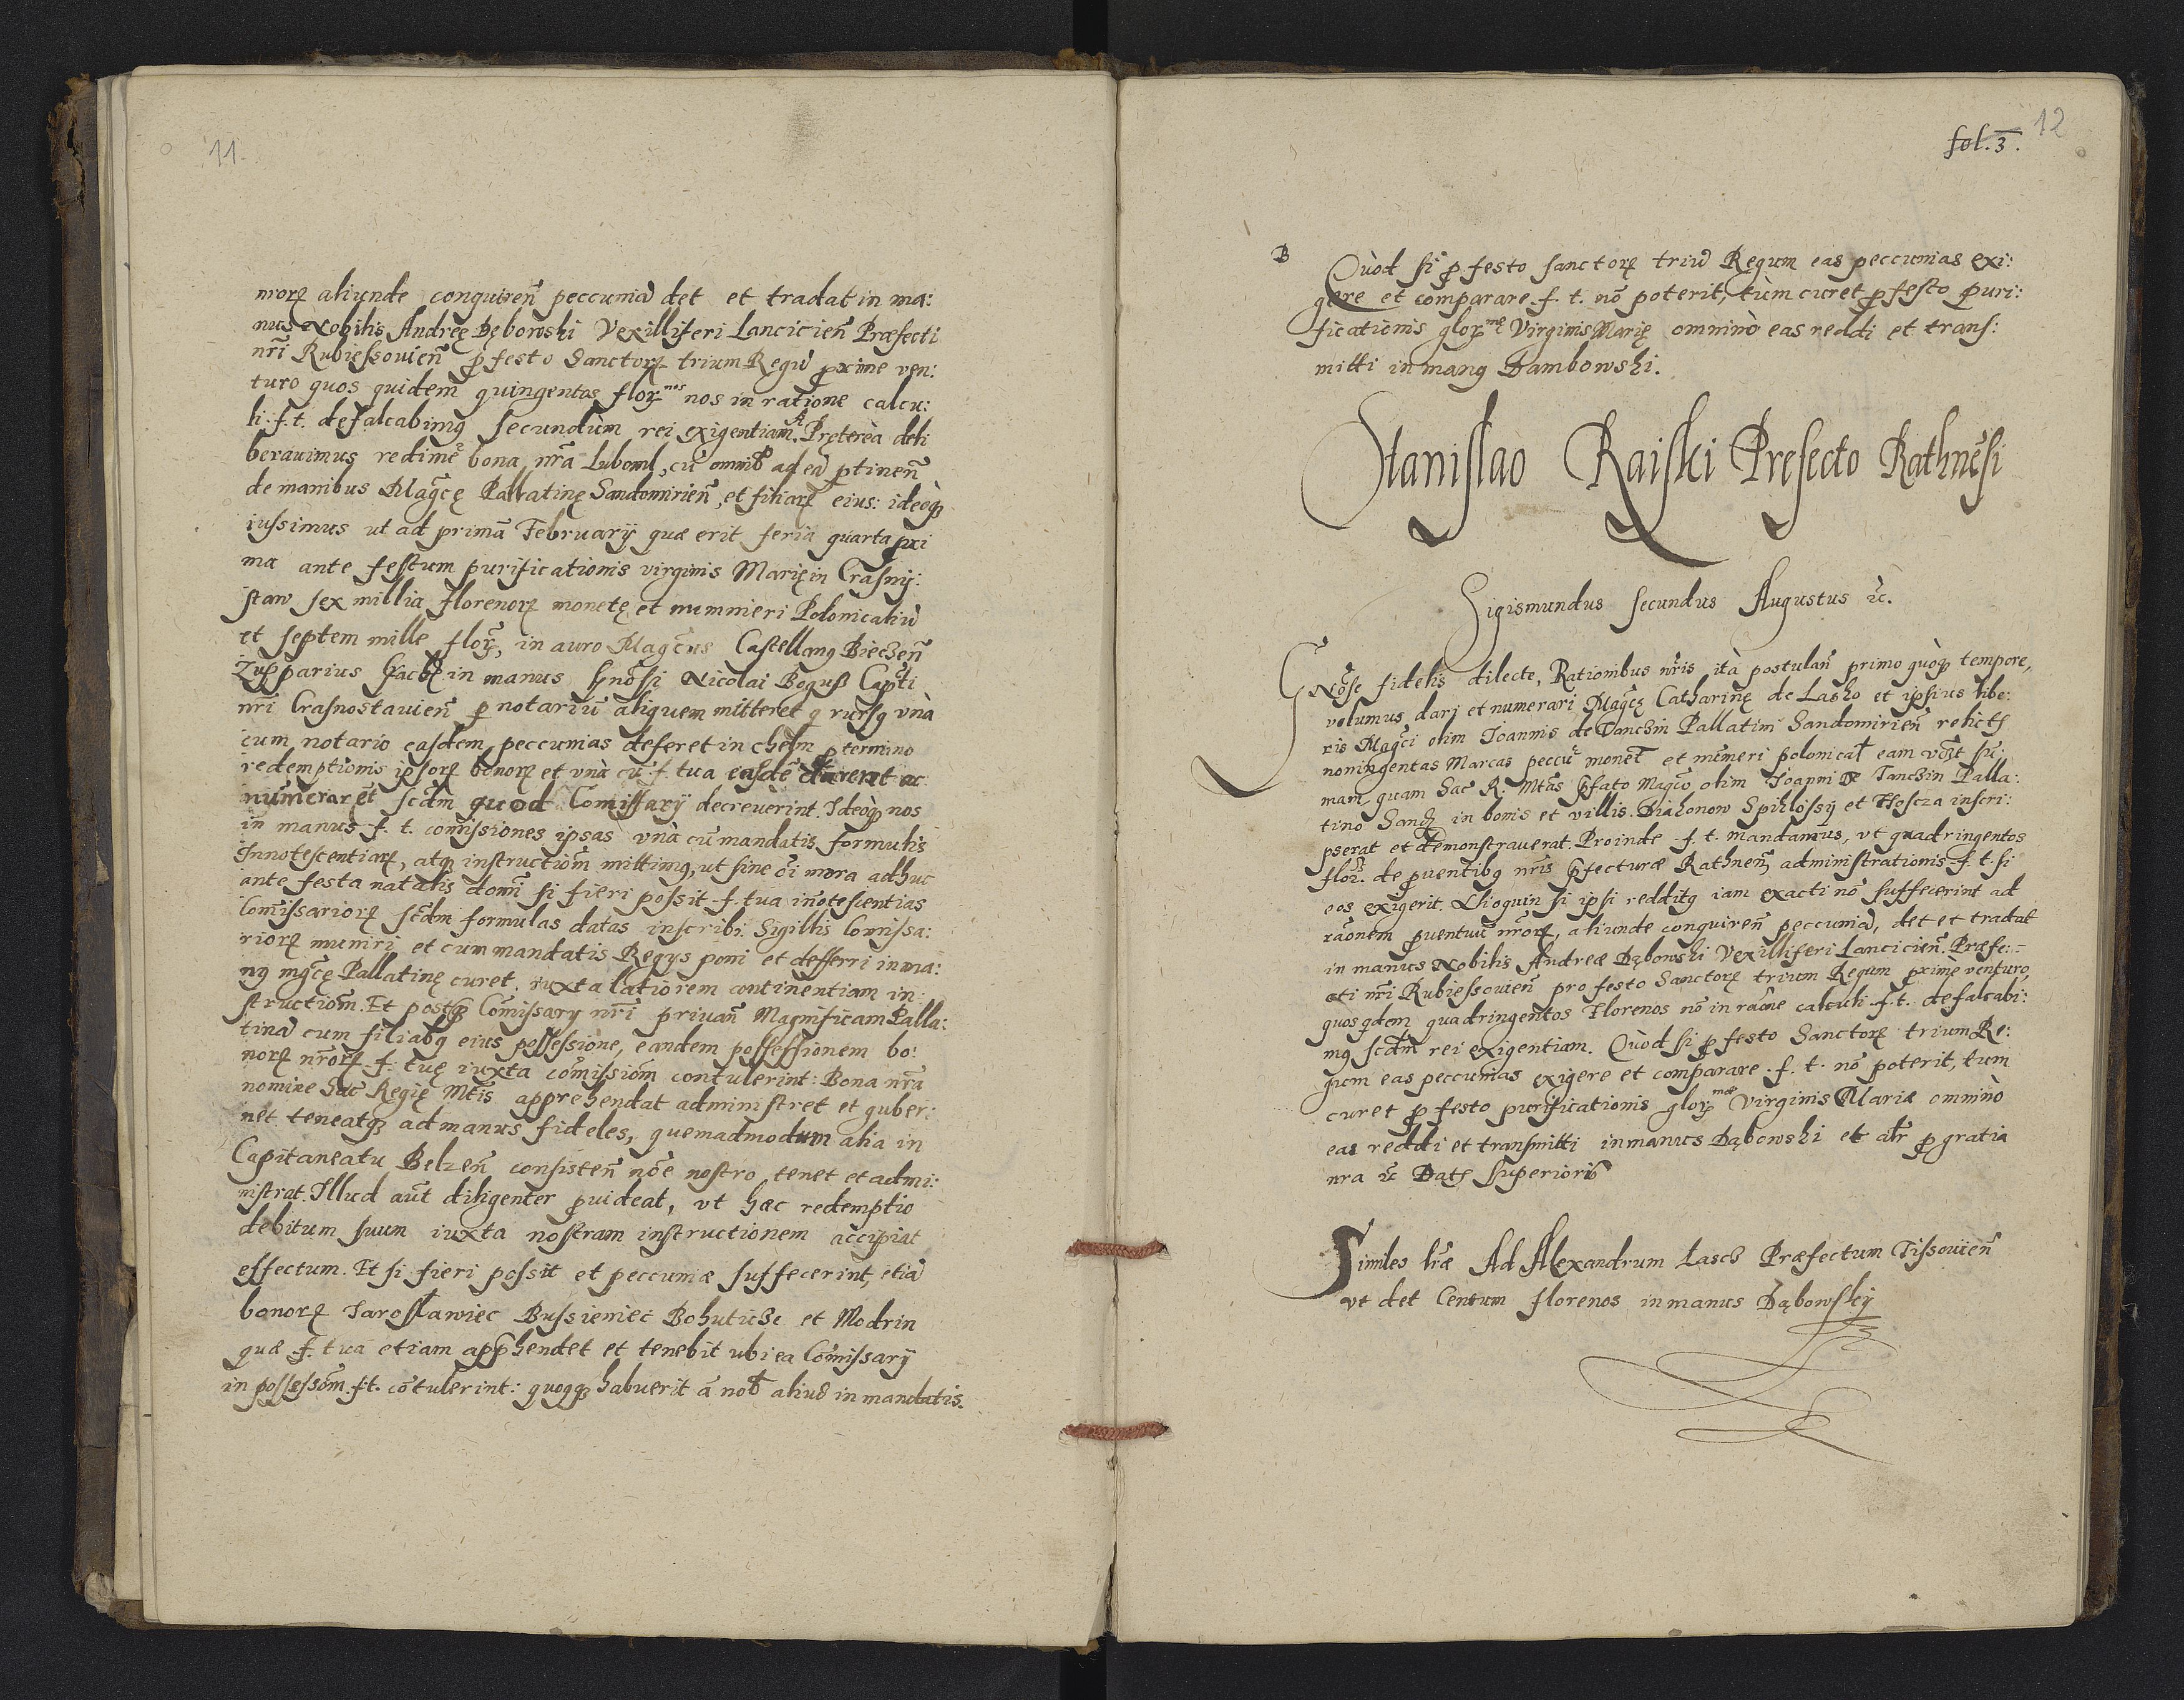 11
nrorꝝ aliunde conquiren̄ peccuniā det et tradat in ma:
nus Nobilis Andreę Dębowski Vexilliferi Lancicien̄ Præfecti
nri̅ Rubiessouien̄ ꝓ festo Sanctorꝝ trium Regū ꝓxime ven:
turo quos quidem quingentos flor̄nos nos in ratione calcu:
li f. t. defalcabimꝰ secundùm rei exigentiam. Pręterèa deli
berauimus redimē bona nr̄a Luboml, cū omnibꝰ ad eā ꝑtinen̄
de manibus Mag̅cę Pallatinę Sandomirien̄, et filiarꝝ eius: ideòqꝫ
iussimus ut ad primā February quæ erit feria quarta ꝓxi
ma ante festum purificationis virginis Marię in Crasny:
staw sex millia florenorꝝ monetę et numnieri Polonicaliū
et septem mille flor̄, in auro Mag̅cus Castellanꝰ Biecen̄
Zupparius Crac̄ in manus Gnōsi Nicolai Boguß Capt̄i
nri̅ Crasnostauien̄ ꝑ notariū aliquem mitteret q̄ rursꝰ vnà
cum notario easdem peccunias deferet in chelm ꝓ termino
redemptionis ipsorꝝ bonorꝝ et vnà cū f. tua easdē daret ac
numeraret scd̄m quod Comissary decreuèrint. Ideòqꝫ nos
in manus f. t. comissiones ipsas vnà cū mandatis formulis
Innotescentiarꝝ, atqꝫ instructiōm mittimꝰ, ut sine ōi mora adhuc
ante festa natalis domi̅ si fieri possit f. tua in̄otescentias
Comissariorꝝ scd̄m formulas datas inscribi Sigillis Comissa:
riorꝝ muniri et cum mandatis Regys poni et defferri in ma:
nꝰ mg̅cę Pallatinę curet, iuxta latiorem continentiam in:
structiōm. Et postqꝫ Comissary nri̅ priuan̄ Magnificam Palla:
tinā cum filiabꝰ eius possessione, eandem possessionem bo:
norꝝ nrōrꝝ f. tuę iuxta comissiōm contulerint: Bona nr̄a
nomine Sac̄ Regię Mt̄is apprehendat administret et guber:
net teneatqꝫ ad manus fideles, quemadmodum alia in
Capitaneatu Belzen̄ consisten̄ nōe nostro tenet et admi:
nistrat. Illud aūt diligenter ꝓuideat, vt hæc redemptio
debitum suum iuxta nostram instructionem accipiat
effectum. Et si fieri possit et peccuniæ suffecerint, etiā
bonorꝝ Jarosławiec Bussieniec Bohuticze et Modrin
quæ f. tua etiam app̄hendet et tenebit ubi ea Comissary
in possessōm f. t. cōtulerint: quoqꝫ habuerit à nob̄ aliud in mandatis.
fol. 3. 12
B Quòd si ꝓ festo sanctorꝝ triū Regum eas peccunias exi:
gere et comparare f. t. nō poterit, tùm curet ꝓ festo puri:
ficationis glor̄mę Virginis Marię omninò eas reddi et trans:
mitti in manꝰ Dambowski.
Stanislao Raiski Prefecto Rathnēsi
Sigismundus secundus Augustus ꝛc.
Gnōse fidelis dilecte, Rationibus nr̄is ità postulan̄ primo quòqꝫ tempore,
volumus darj et numerari Mag̅cę Catharinę de Lasko et ipsius libe:
ris Mag̅ci olim Joannis de Tanczin Pallatini Sandomirien̄ relictꝭ
noningentas Marcas peccū monet̄ et nūmeri polonical̄ eam vīꝫt sū:
mam, quam Sac̄ R: Mt̄as p̄fato Magc̄o olim Joanni de Tanczin Palla:
tino Sand̄ in bonis et villis Diakonow Spiklossy et Hoscza inscri:
pserat et demonstrauerat. Proinde f. t. mandamus, vt quadringentos
flor̄. de ꝓuentibꝰ nr̄is p̄fecturæ Rathnen̄ administrationis f. t. si
eos exigerit. Alioquin si ipsi redditꝰ iam exacti nō suffecerint ad
raōnem ꝓuentuū nr̄orꝝ, aliunde conquiren̄ peccuniā, det et tradat
in manus Nobilis Andreæ Dąbowski Vexilliferi Lancicien̄. Præfe:
cti nri̅ Rubiessouien̄ pro festo Sanctorꝝ trium Regum ꝓximè venturo,
quos qdem quadringentos Florenos nō in raōne calculi f. t. defalcabi:
mꝰ scd̄m rei exigentiam. Quòd si ꝓ festo Sanctorꝝ trium Re:
gum eas peccunias exigere et comparare f. t. nō poterit, tum
curet ꝓ festo purificationis glor̄mæ Virginis Mariæ omninò
eas reddi et transmitti in manus Dąbowski et alr̄ ꝓ gratia
nra ꝛc Datꝭ Superioribꝰ
Similes lr̄æ Ad Alexandrum Łasch Præfectum Tissouien̄
vt det Centum florenos in manus Dąbowskÿ